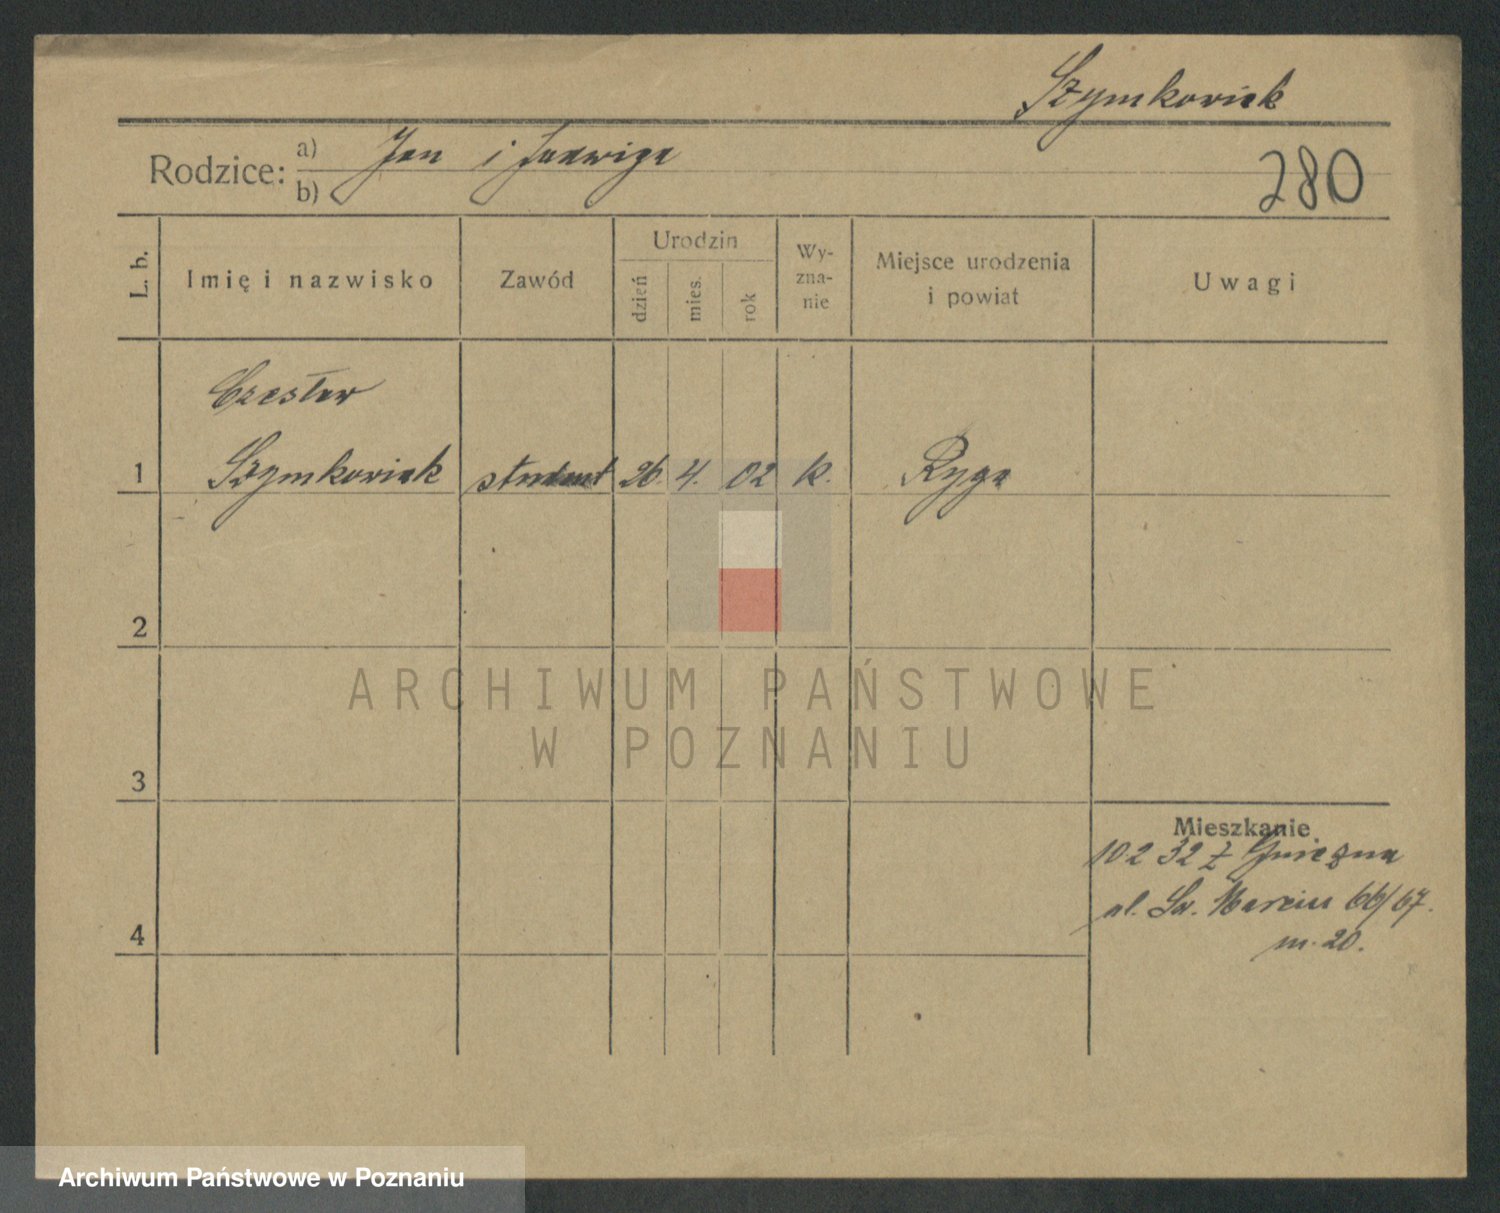 Szymkowiak
Rodzice: a) Jan i Jadwiga
b)
280
L. b. Imię i nazwisko Zawód Urodzin dzień mies. rok Wy-zna-nie Miejsce urodzenia i powiat Uwagi
Czesław
1 Szymkowiak student 26. 4. 02 k. Ryga
2
ARCHIWUM PAŃSTWOWE
W POZNANIU
3
Mieszkanie
10 2 32 z Gniezna
ul. Św. Marcin 66/67.
4
m. 20.
Archiwum Państwowe w Poznaniu